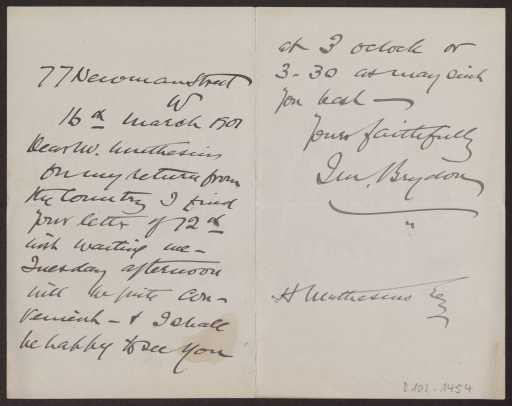 77 Newman Street
W
16th March 1901
Dear Mr. Muthesius
On my return from
the Country I find
your letter of 12th
inst waiting me -
Tuesday afternoon
will be quite con-
venient - & I shall
be happy to see you
at 3 oclock or
3-30 as may suit
you best -
Yours faithfully
Jno. Brydon
H Muthesius Esq
D 102 - 1454